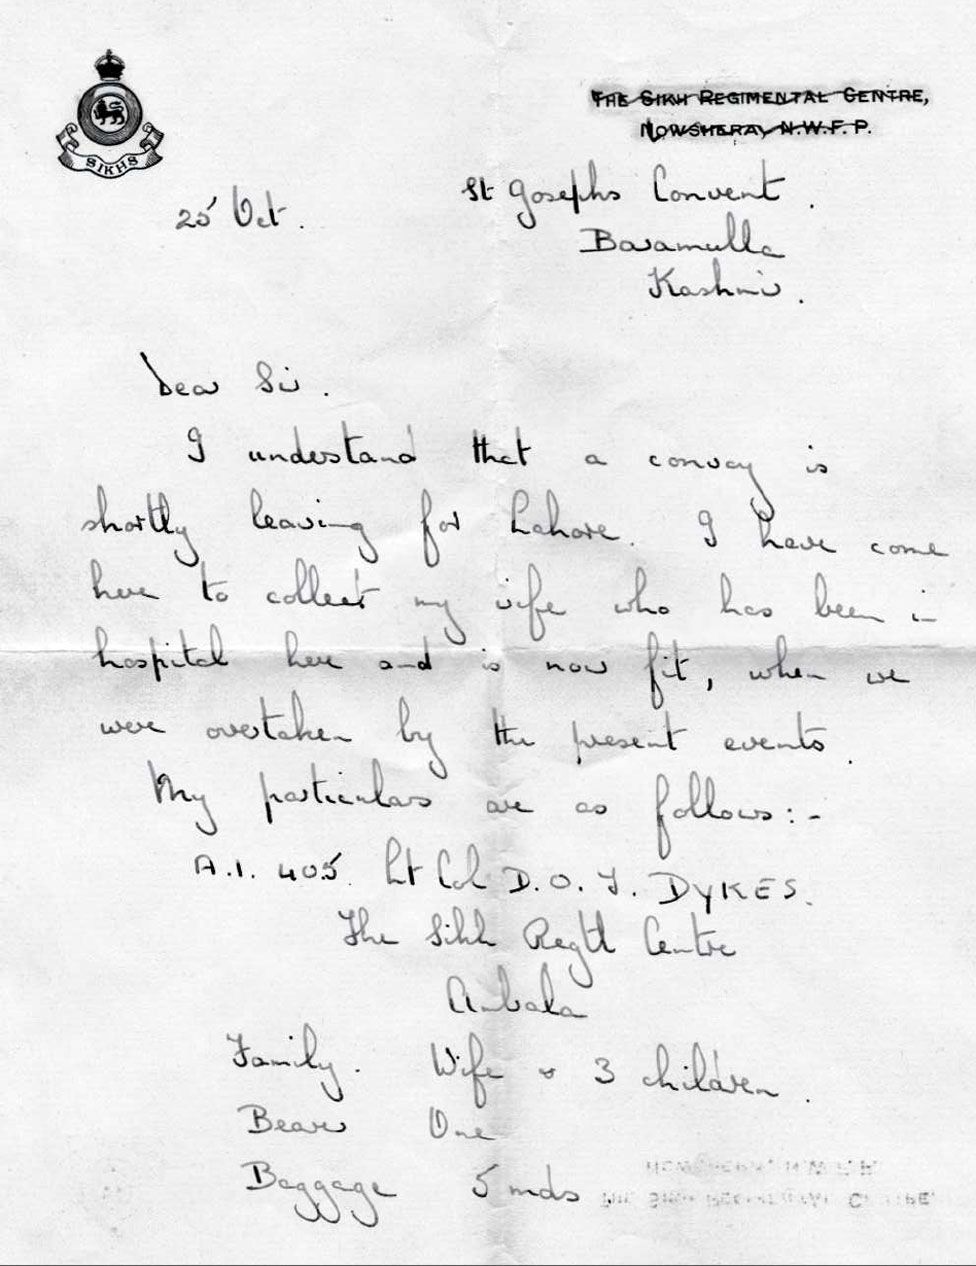 SIKHS
THE SIKH REGIMENTAL CENTRE,
NOWSHERA, N.W.F.P.
25 Oct.
St Josephs Convent.
Baramulla
Kashmir.
Dear Sir.
I understand that a convoy is
shortly leaving for Lahore. I have come
here to collect my wife who has been in
hospital here and is now fit, when we
were overtaken by the present events.
My particulars are as follows:-
A.I. 405. Lt Col D.O.T. DYKES.
The Sikh Regtl Centre
Ambala
Family. Wife & 3 children.
Bearer One
Baggage 5 mds
NOWSHERA, N.W.F.P.
THE SIKH REGIMENTAL CENTRE,